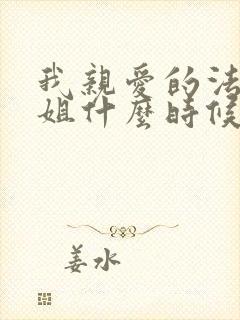 我親愛的法
姐什麼時候
姜水